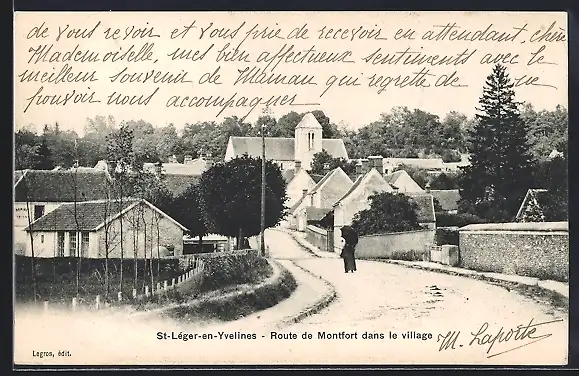 de vous revoir et vous prie de recevoir en attendant, chère
Mademoiselle, mes bien affectueux sentiments avec le
meilleur souvenir de Maman qui regrette de ne
pouvoir nous accompagner
St-Léger-en-Yvelines - Route de Montfort dans le village
M. Laporte
Legros, édit.